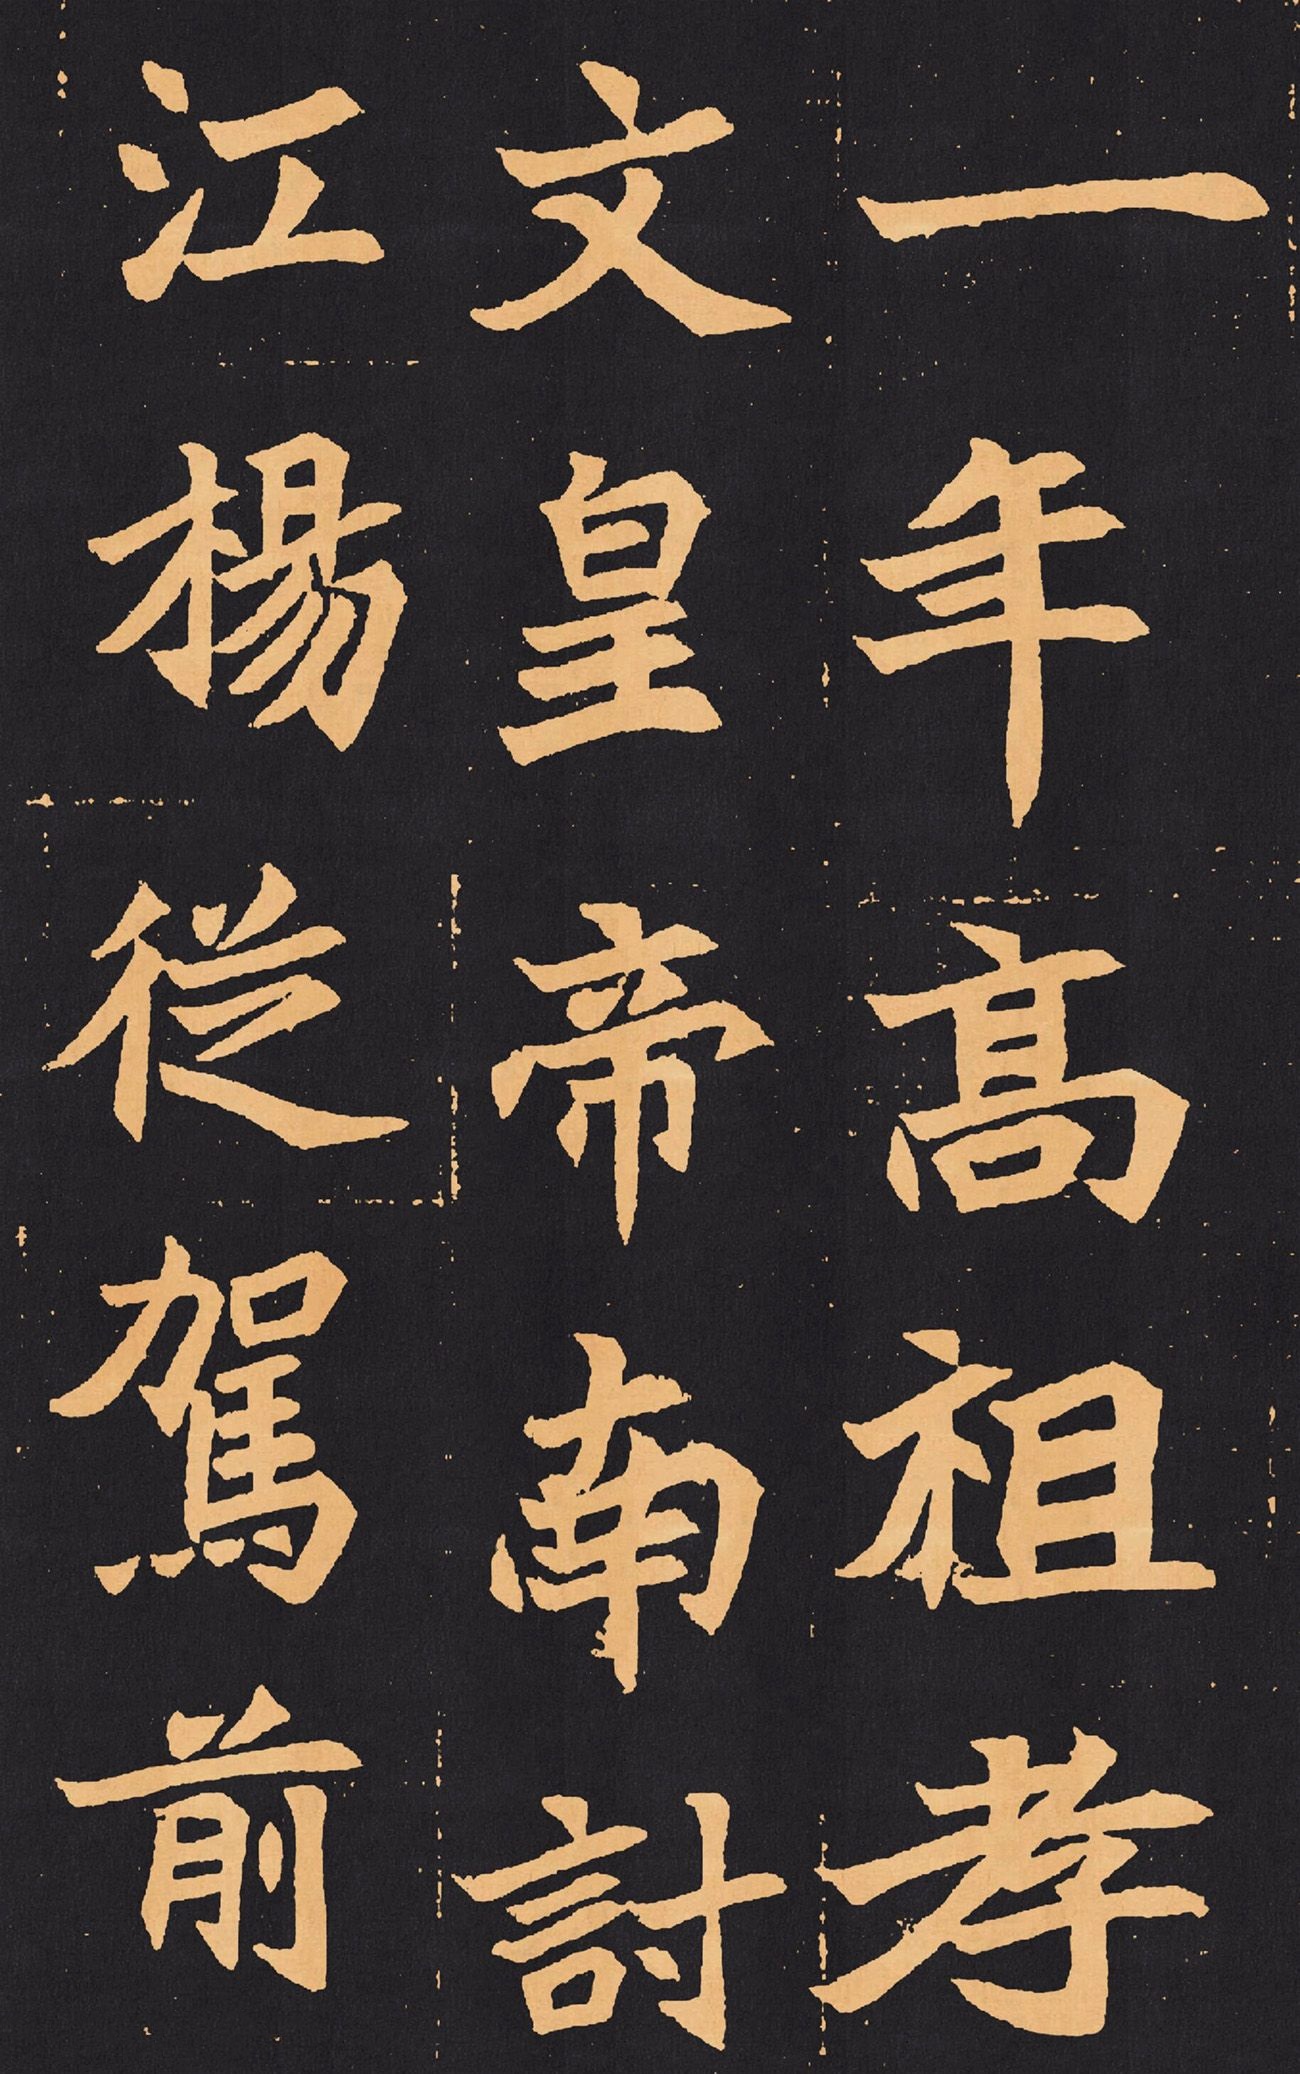 一年高祖孝
文皇帝南討
江楊從駕前